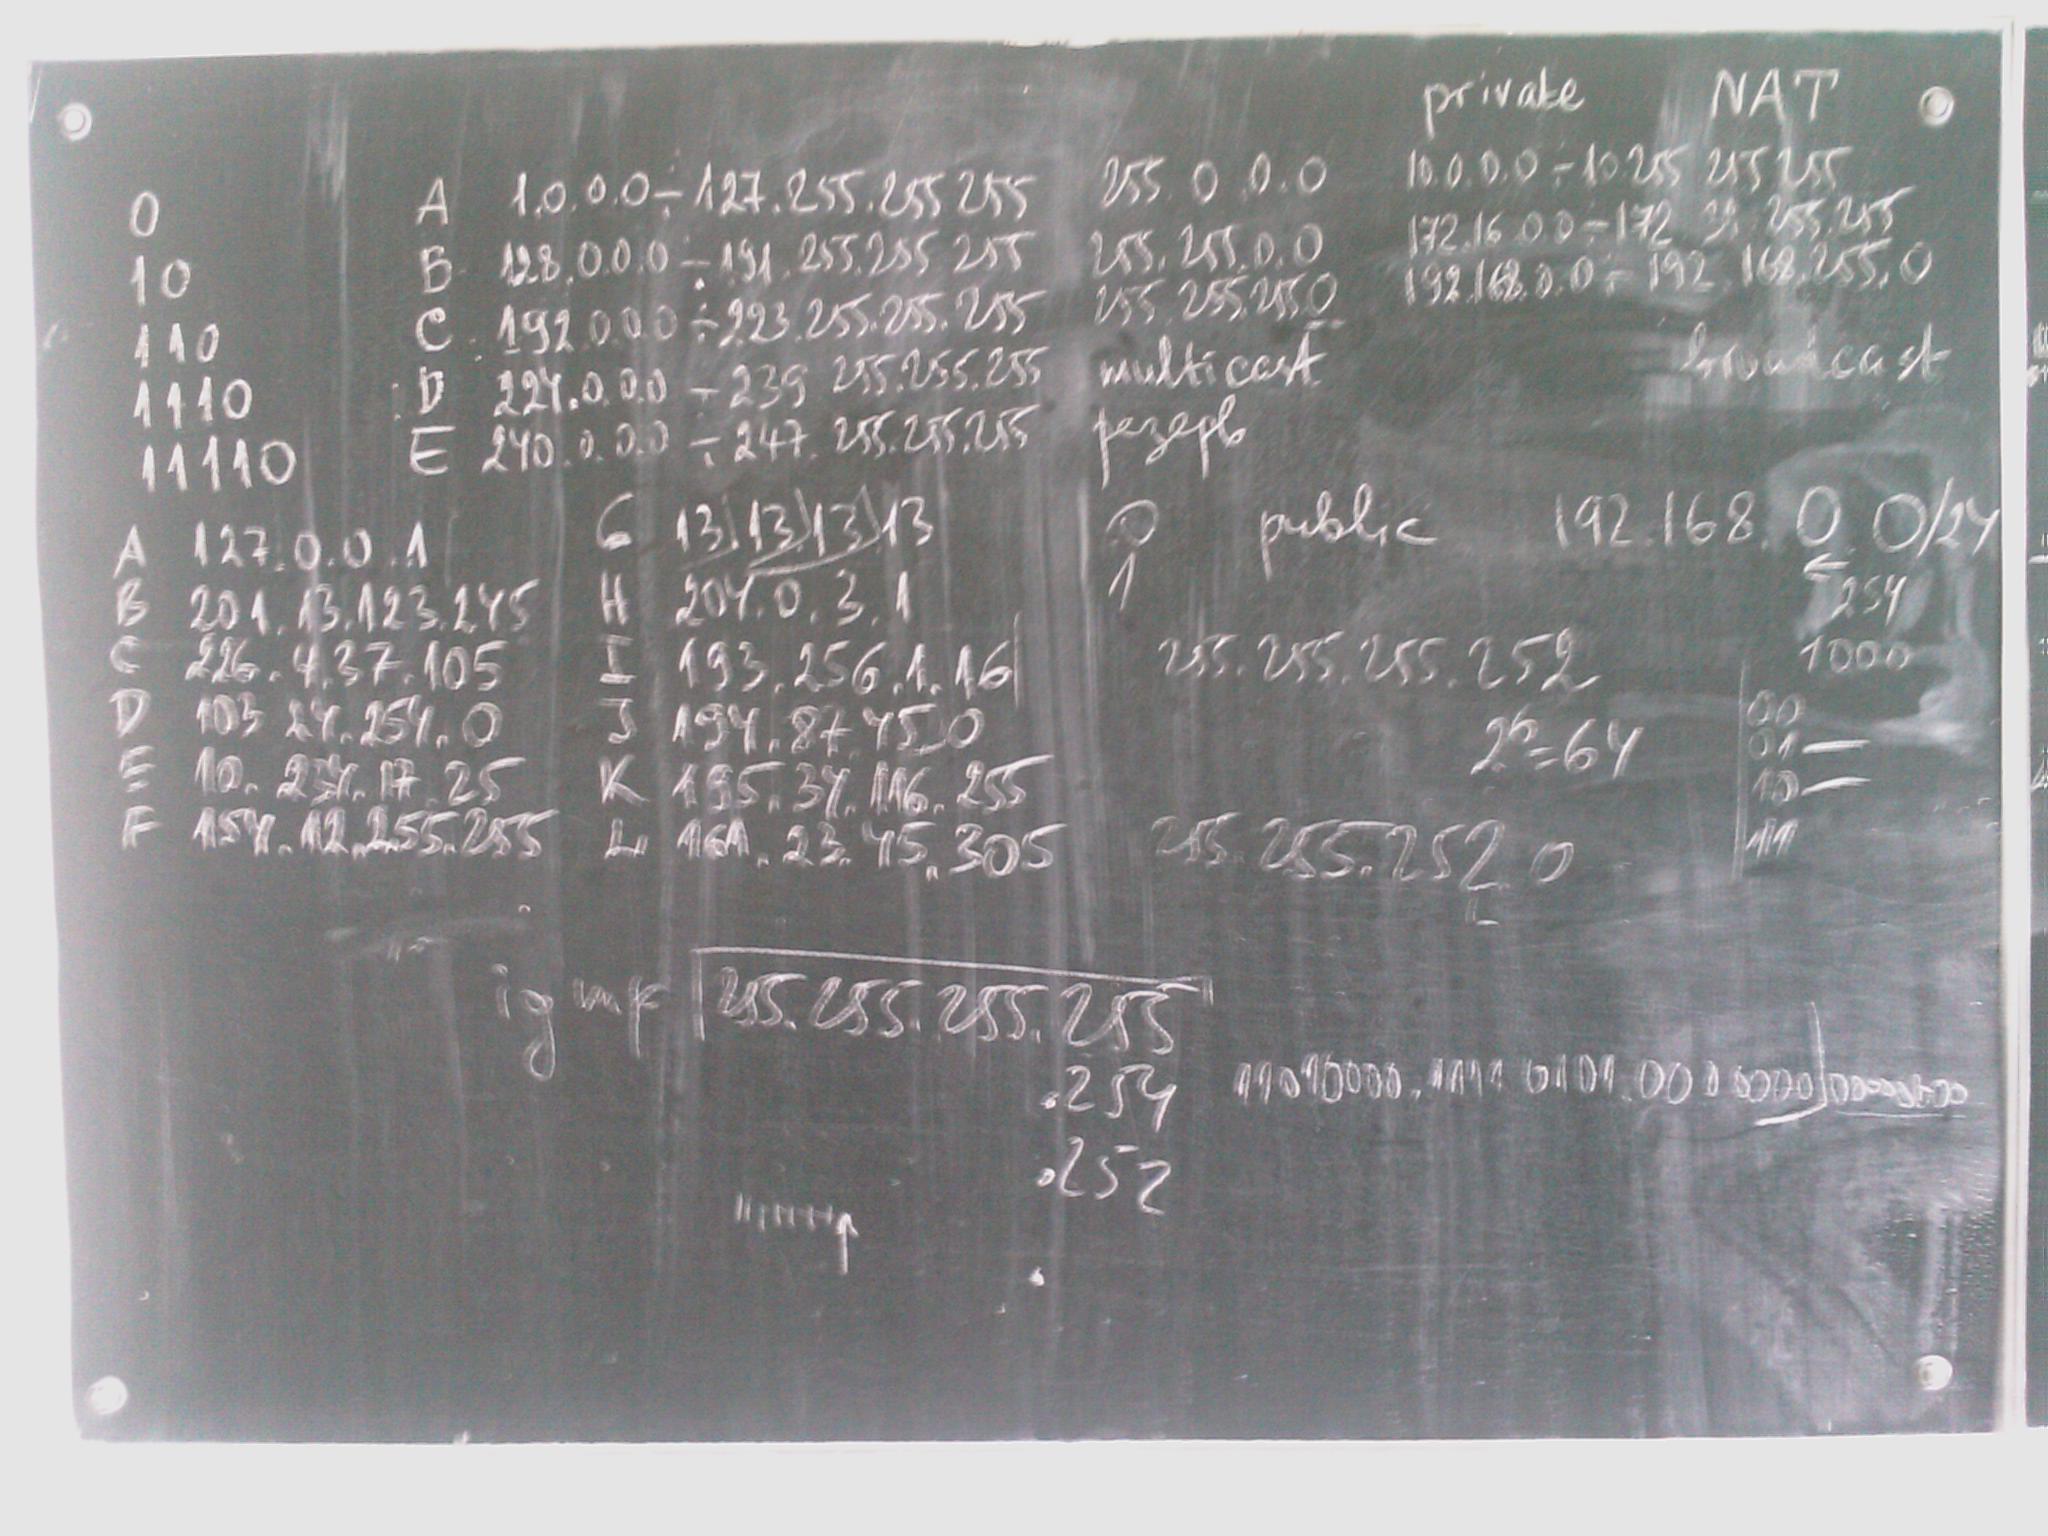 private NAT
0 A 1.0.0.0÷127.255.255 255 255.0.0.0 10.0.0.0÷10.255 255 255
10 B 128.0.0.0÷191.255.255 255 255.255.0.0 172.16.0.0÷172 31.255.255
110 C 192.0.0.0÷223.255.255.255 255 255.255.0 192.168.0.0÷192.168.255.0
1110 D 224.0.0.0÷239 255.255.255 multicast broadcast
11110 E 240.0.0.0÷247.255.255.255 резерв
A 127.0.0.1 G 13.13.13.13 0 public 192.168.0.0/24
B 201.13.123.245 H 204.0.3.1 1 254
C 226.4.37.105 I 193.256.1.16 255.255.255.252 1000
D 103 24.254.0 J 194.87 45.0 2⁶=64 00
01
E 10.234.17.25 K 195.34.116.255 10
F 154.12.255.255 L 161.23.45.305 255.255.252.0 11
igmp 255.255.255.255
.254
.252